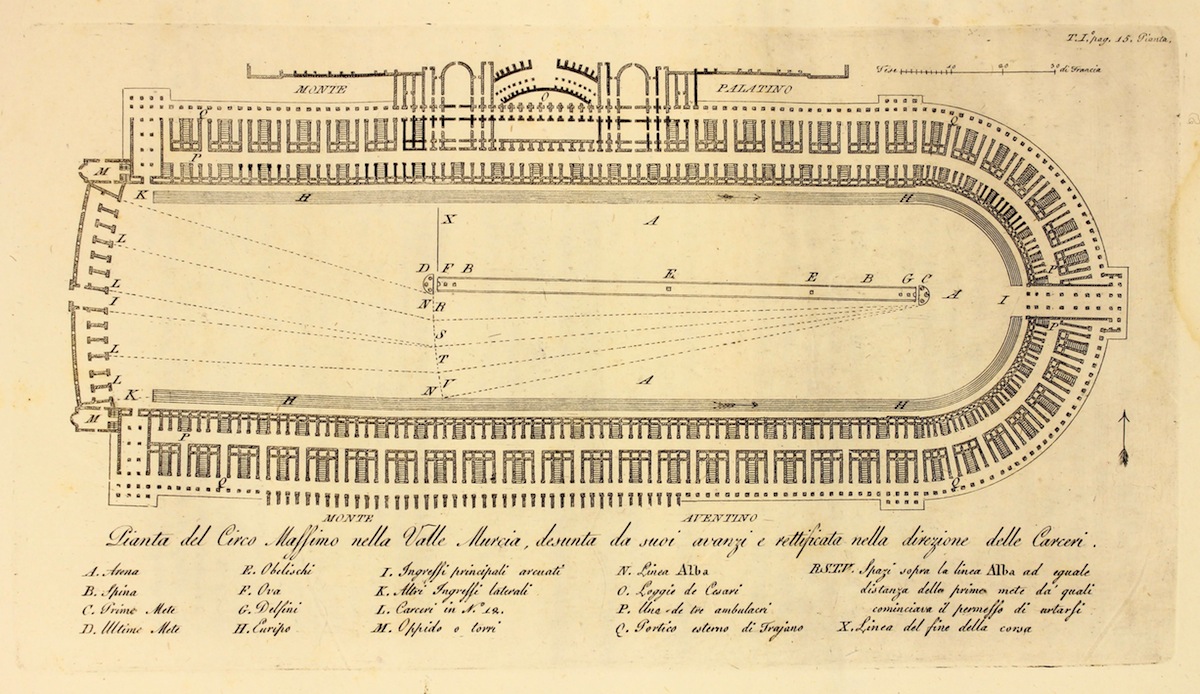 T.I.º pag. 15. Pianta.
Tese 10 20 30 di Francia
MONTE PALATINO
O
Q Q
P
M
K H H
X A
L
D F B E E B G C
L N R A I P
I
S P
L T
L N V A
K H H
M
P
Q Q
MONTE AVENTINO
Pianta del Circo Massimo nella Valle Murcia, desunta da suoi avanzi e rettificata nella direzione delle Carceri.
A. Arena E. Obelischi I. Ingressi principali arcuati N. Linea Alba R.S.T.V. Spazi sopra la linea Alba ad eguale
B. Spina F. Ova K. Altri Ingressi laterali O. Loggie de Cesari distanza delle prime mete da' quali
C. Prime Mete G. Delfini L. Carceri in N.º 12. P. Uno de tre ambulacri cominciava il permesso di urtarsi
D. Ultime Mete H. Euripo M. Oppido o torri Q. Portico esterno di Trajano X. Linea del fine della corsa